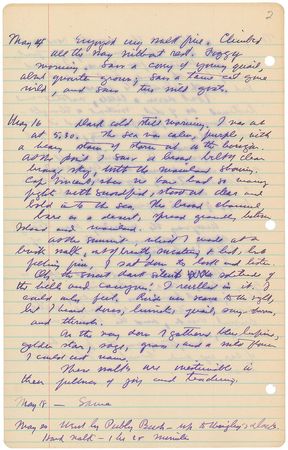 2
May 14 Enjoyed my walk fine. Climbed
all the way without rest. Foggy
morning. Saw a covey of young quail,
about quarter grown; Saw a tame cat gone
wild, and saw two wild goats.
May 16 Dark cold still morning. I was out
at 5:30. The sea was calm, purple, with
a heavy storm at the horizon.
At the point I saw a broad belt of clear
bronze sky, with the mainland showing.
Cape Vincente, where we have had so many
fights with swordfish, stood out clear and
bold into the sea. The broad channel,
bare as a desert, spread grandly between
island and mainland.
At the summit, which I made at a
brisk walk, not breathing, sweating
feeling fine, I sat down to look and listen.
Oh, the sweet dark silent solitude of
the hills and canyons! I revelled in it. I
could only feel. Birds were scarce to the sight,
but I heard doves, linnets, quail,
and thrush.
On the way down I gathered blue lupine,
golden star, sage, grass and a wild flower
I could not name.
These walks are inestimable in
their fullness of joy and teaching.
May 18 — Same
May 20 Went by Pebbly Beach — up to Wrigley's
Hard walk — 1 hr 25 minutes